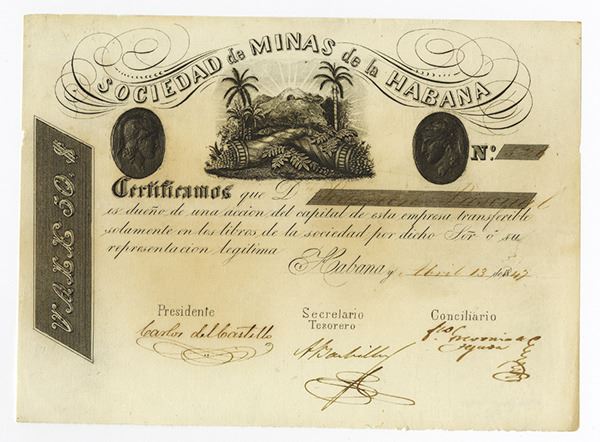 SOCIEDAD de MINAS de la HABANA
Nº.
VALE 50. $
Certificamos que D.
es dueño de una accion del capital de esta empresa transferible
solamente en los libros de la sociedad por dicho Sor. ó su
representacion legitima
Habana y Abril 13 de 1847
Presidente
Secretario
Tesorero
Conciliario
Carlos del Castillo